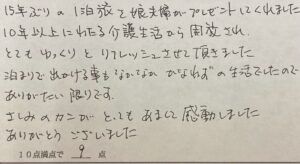 15年ぶりの1泊旅を娘夫婦がプレゼントしてくれました
10年以上にわたる介護生活から開放され
とてもゆっくりとリフレッシュさせて頂きました
泊まりで出かける事もなかなか かなわずの生活でしたので
ありがたい限りです。
さしみのカンパがとてもあまして感動しました
ありがとうございました
10点満点で 9 点